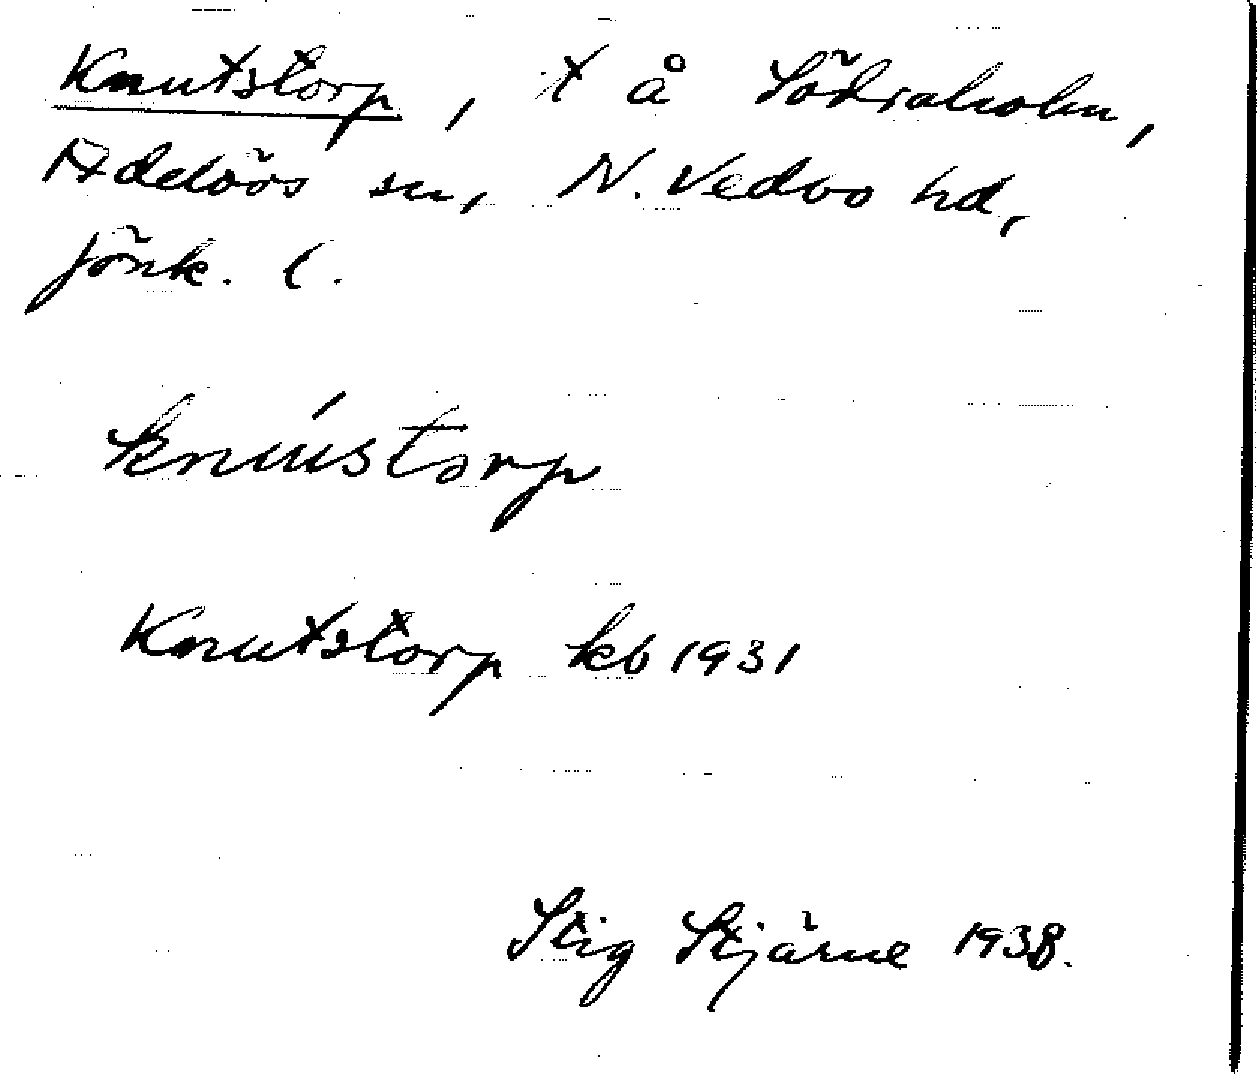 Knutstorp, t å Södraholm,
Adelövs sn, N. Vedbo hd,
Jönk. l.
knústorp
Knutstorp kb 1931
Stig Stjärne 1938.